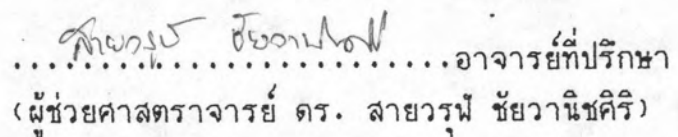 สายวรุฬ ชัยวานิชศิริ
..............................อาจารย์ที่ปรึกษา
(ผู้ช่วยศาสตราจารย์ ดร. สายวรุฬ ชัยวานิชศิริ)